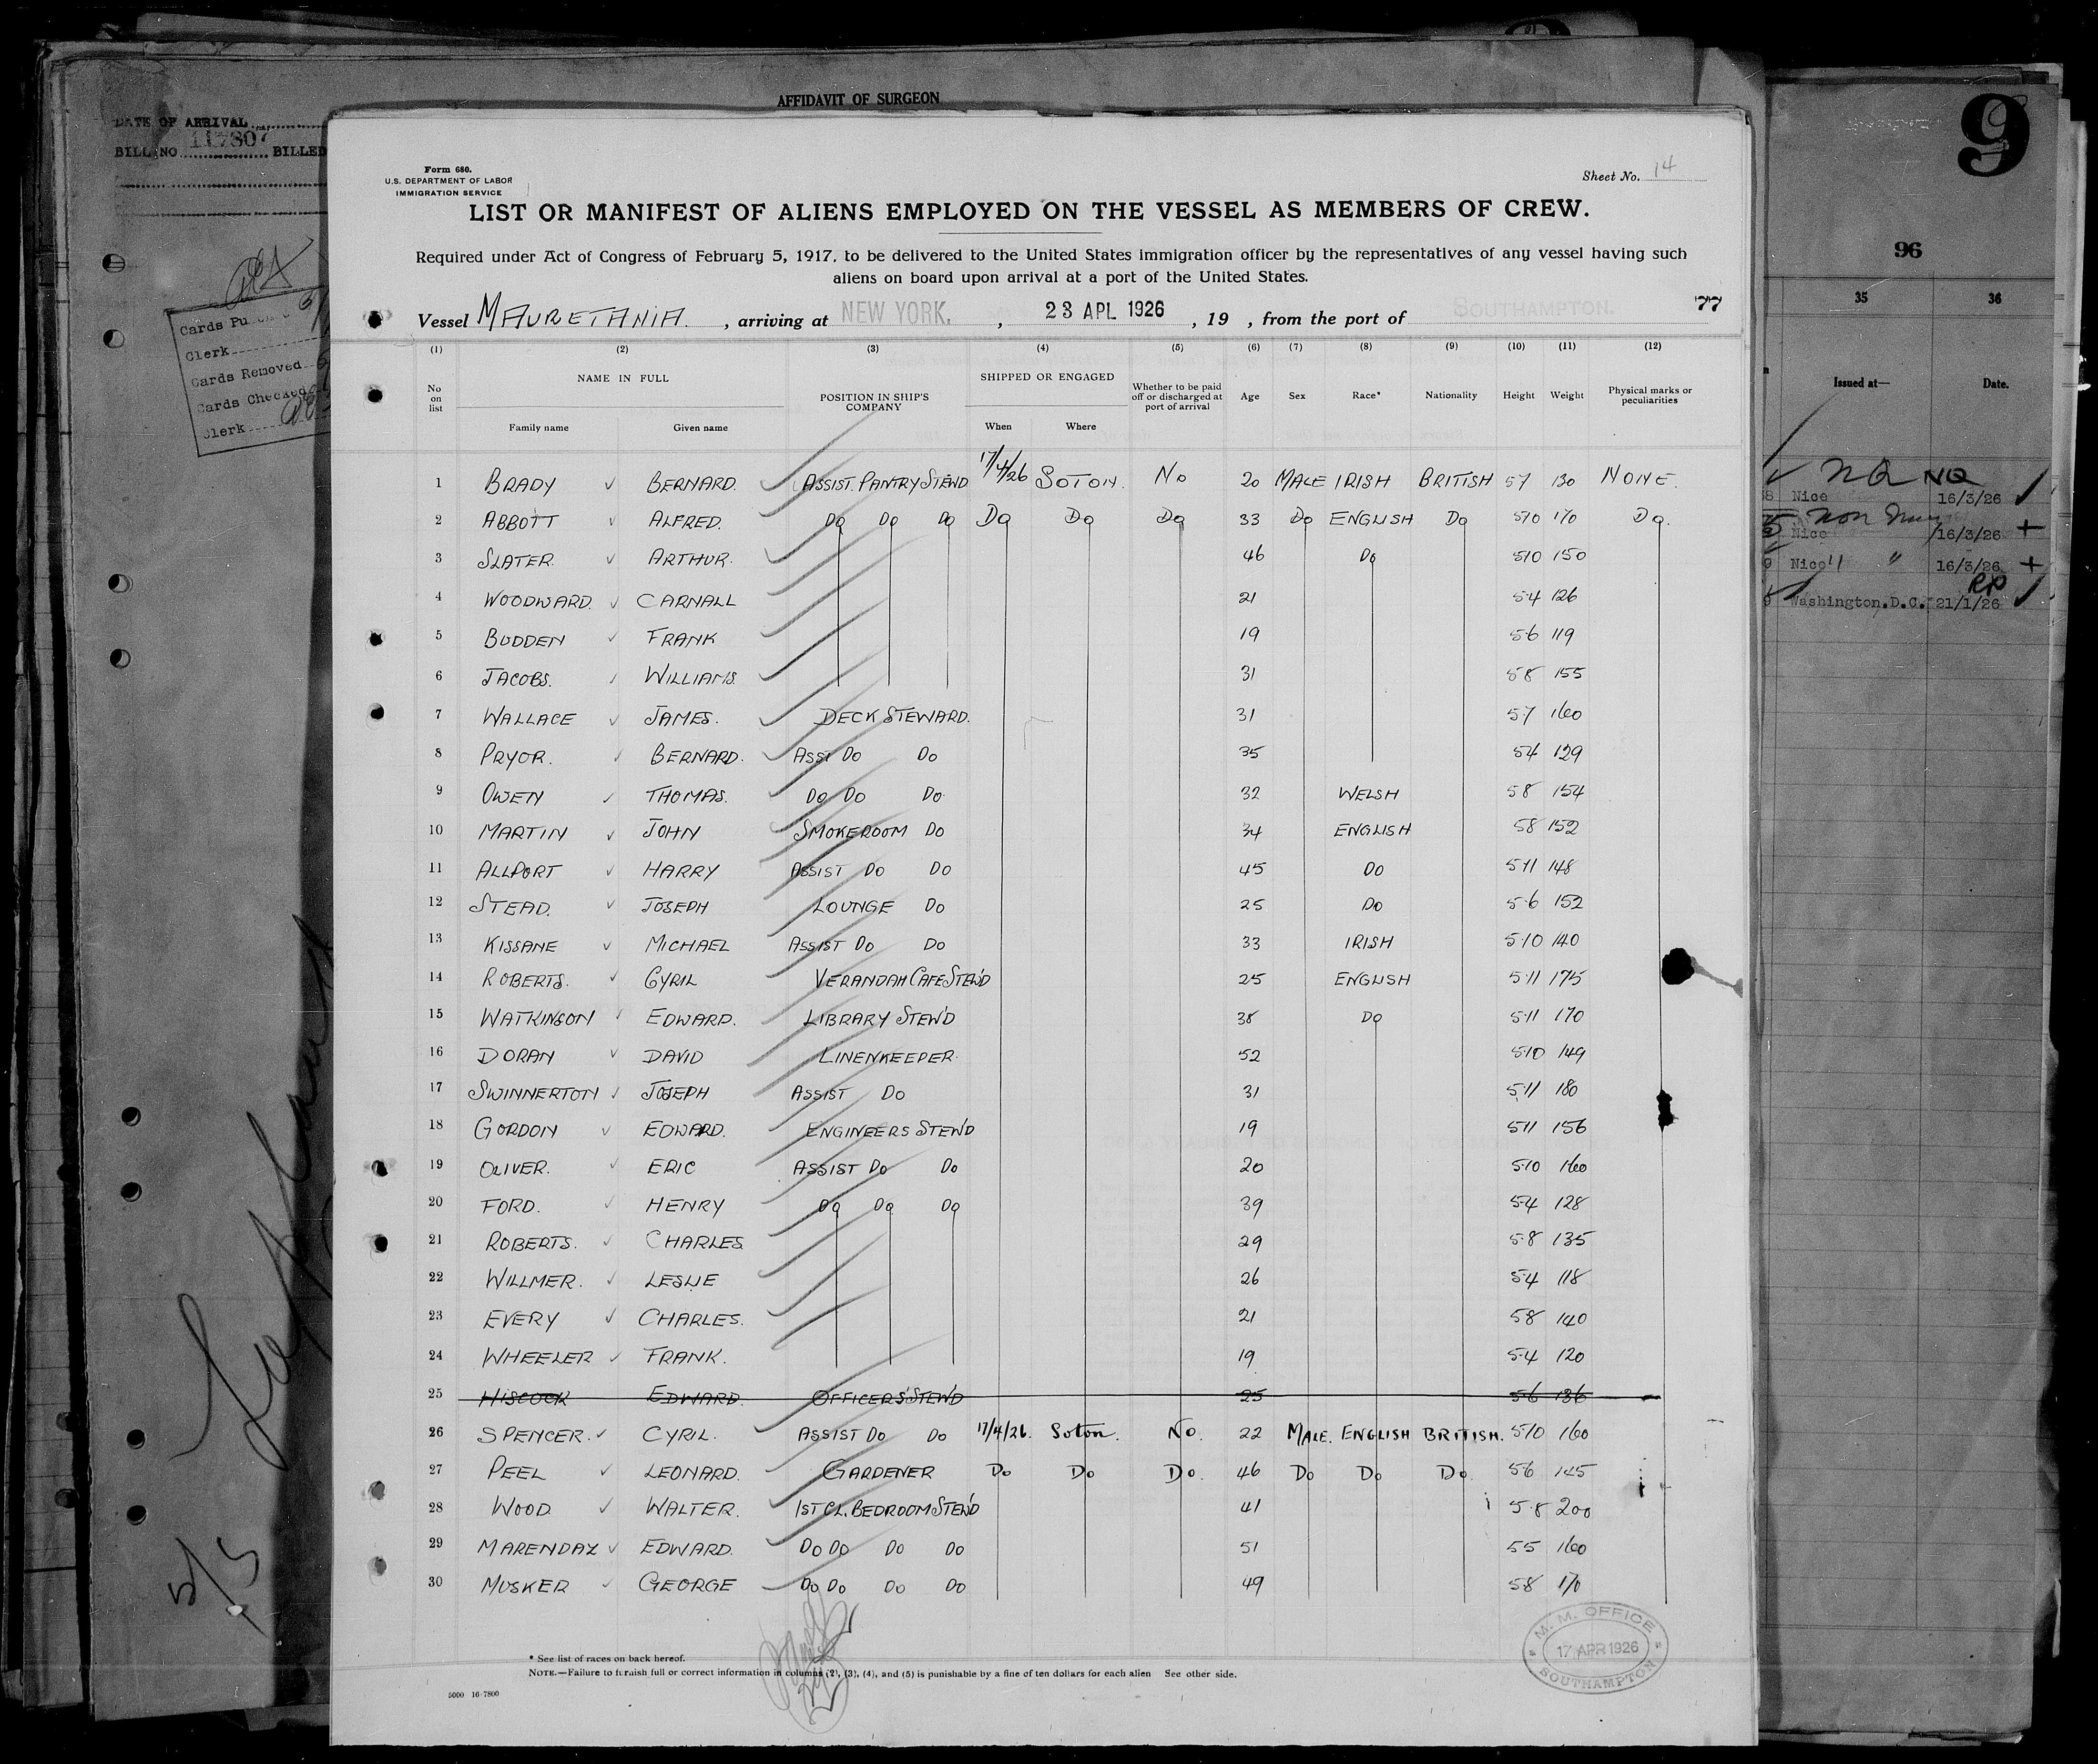 AFFIDAVIT OF SURGEON
DATE OF ARRIVAL
BILL NO 117807 BILLED
Cards Pu
Clerk
Cards Removed
Cards Checked
Clerk
5/5
9
96
35 36
Issued at— Date.
NQ NQ
Nice 16/3/26
Non
Nice 16/3/26 +
Nice " " 16/3/26 +
RP
Washington.D.C. 21/1/26
Form 680.
U.S. DEPARTMENT OF LABOR
IMMIGRATION SERVICE
Sheet No. 14
LIST OR MANIFEST OF ALIENS EMPLOYED ON THE VESSEL AS MEMBERS OF CREW.
Required under Act of Congress of February 5, 1917, to be delivered to the United States immigration officer by the representatives of any vessel having such
aliens on board upon arrival at a port of the United States.
Vessel MAURETANIA. , arriving at NEW YORK. , 23 APL 1926 , 19 , from the port of SOUTHAMPTON. 77
(1) (2) (3) (4) (5) (6) (7) (8) (9) (10) (11) (12)
No on list NAME IN FULL Family name Given name POSITION IN SHIP'S COMPANY SHIPPED OR ENGAGED When Where Whether to be paid off or discharged at port of arrival Age Sex Race* Nationality Height Weight Physical marks or peculiarities
1 BRADY BERNARD. ASSIST. PANTRY STEWD 17/4/26 SOTON. No 20 MALE IRISH BRITISH 57 130 NONE.
2 ABBOTT ALFRED. Do Do Do Do Do Do 33 Do ENGLISH Do 510 170 Do.
3 SLATER. ARTHUR. 46 Do 510 150
4 WOODWARD. CARNALL 21 5-4 126
5 BUDDEN FRANK 19 5-6 119
6 JACOBS. WILLIAMS. 31 5-8 155
7 WALLACE JAMES. DECK STEWARD. 31 5-7 160
8 PRYOR. BERNARD. ASST Do Do 35 54 129
9 OWEN THOMAS. Do Do Do 32 WELSH 58 154
10 MARTIN JOHN SMOKEROOM Do 34 ENGLISH 58 152
11 ALLPORT HARRY ASSIST Do Do 45 Do 5-11 148
12 STEAD. JOSEPH LOUNGE Do 25 Do 5-6 152
13 KISSANE MICHAEL ASSIST Do Do 33 IRISH 5-10 140
14 ROBERTS. CYRIL VERANDAH CAFE STEW'D 25 ENGLISH 5-11 175
15 WATKINSON EDWARD. LIBRARY STEW'D 38 Do 5-11 170
16 DORAN DAVID LINENKEEPER. 52 5-10 149
17 SWINNERTON JOSEPH ASSIST Do 31 5-11 180
18 GORDON EDWARD. ENGINEERS STEW'D 19 5-11 156
19 OLIVER. ERIC ASSIST Do Do 20 5-10 160
20 FORD. HENRY Do Do Do 39 5-4 128
21 ROBERTS. CHARLES 29 5-8 135
22 WILLMER. LESLIE 26 5-4 118
23 EVERY CHARLES. 21 58 140
24 WHEELER FRANK. 19 5-4 120
25 HISCOCK EDWARD. OFFICERS' STEW'D 25 5-6 136
26 SPENCER. CYRIL. ASSIST Do Do 17/4/26. Soton. No. 22 MALE. ENGLISH BRITISH. 5-10 160
27 PEEL LEONARD. GARDENER Do Do Do. 46 Do Do Do. 56 145
28 WOOD WALTER. 1ST CL. BEDROOM STEW'D 41 5-8 200
29 MARENDAZ EDWARD. Do Do Do Do 51 55 160
30 MUSKER GEORGE Do Do Do Do 49 58 170
* See list of races on back hereof.
NOTE.—Failure to furnish full or correct information in columns (2), (3), (4), and (5) is punishable by a fine of ten dollars for each alien See other side.
5000 16-7800
M. M. OFFICE
17 APR 1926
SOUTHAMPTON